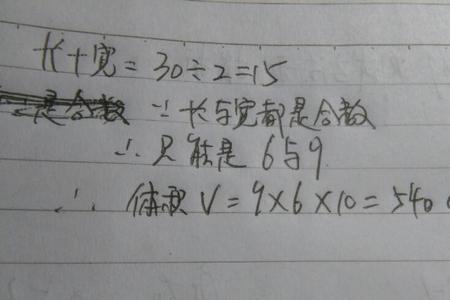 长+宽=30÷2=15
是合数 ∵长与宽都是合数
∴只能是6与9
∴体积V=9×6×10=540